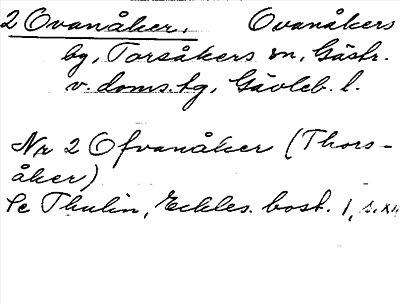 2 Ovanåker. Ovanåkers
bg, Torsåkers sn, Gästr.
v. doms.hg, Gävleb. l.
Nr 2 Ofvanåker (Thors-
åker)
Se Thulin, Eckles. bost. 1, s. XII